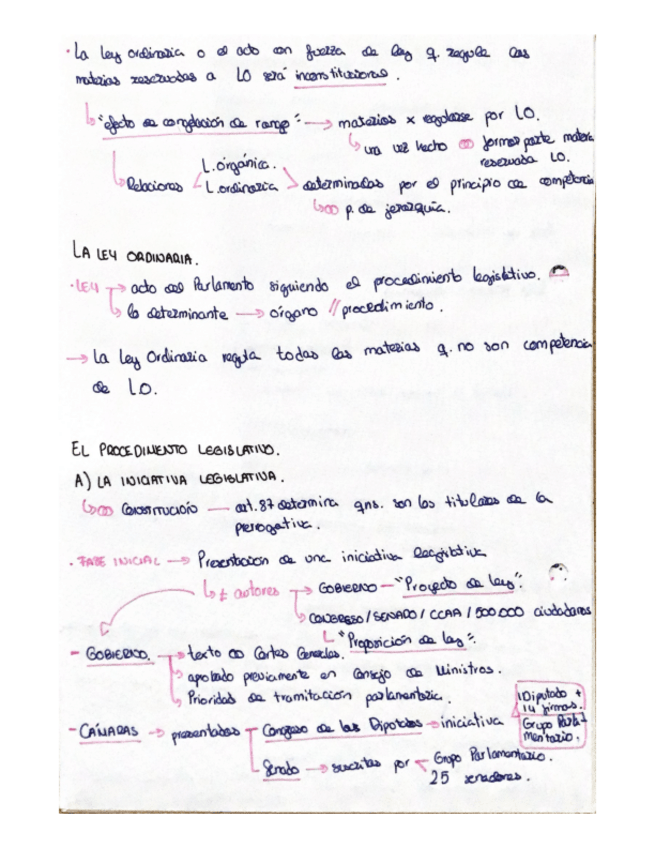 · La ley ordinaria o el acto con fuerza de ley q. regule las
materias reservadas a LO será inconstitucional.
"efecto de congelación de rango": → materias x regularse por LO.
una vez hecho formar parte materia
reservada LO.
Relaciones L.orgánica.
L.ordinaria determinadas por el principio de competencia
p. de jerarquía.
LA LEY ORDINARIA.
· LEY → acto del Parlamento siguiendo el procedimiento legislativo.
lo determinante → órgano // procedimiento.
→ La Ley Ordinaria regula todas las materias q. no son competencia
de LO.
EL PROCEDIMIENTO LEGISLATIVO.
A) LA INICIATIVA LEGISLATIVA.
Constitución — art.87 determina qns. son los titulares de la
prerrogativa.
· FASE INICIAL → Presentación de una iniciativa legislativa
≠ autores → GOBIERNO — "Proyecto de ley":
CONGRESO / SENADO / CCAA / 500.000 ciudadanos
"Proposición de ley":
- GOBIERNO. → texto Cortes Generales.
aprobado previamente en Consejo de Ministros.
Prioridad de tramitación parlamentaria.
- CÁMARAS → presentadas Congreso de los Diputados → iniciativa
1 Diputado +
14 firmas.
Grupo Parla-
mentario.
Senado → suscritas por Grupo Parlamentario.
25 senadores.